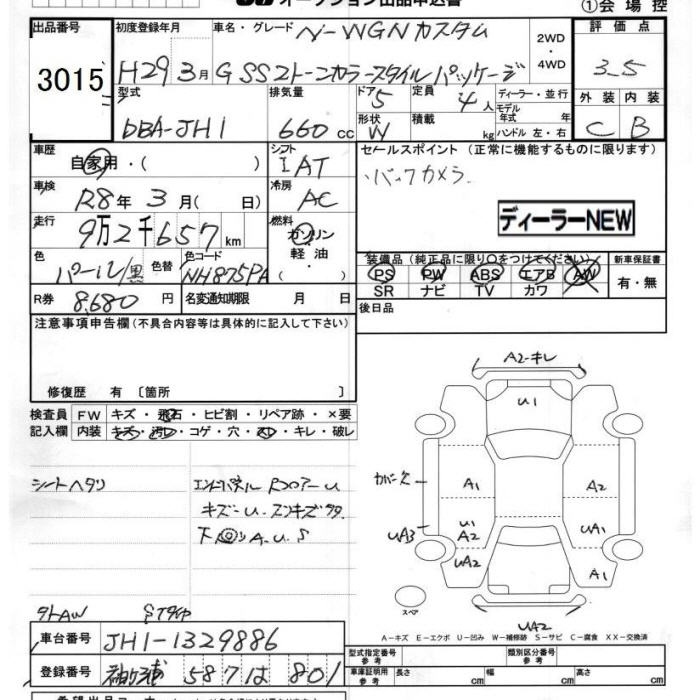 オークション出品申込書
①会場控
出品番号
3015
初度登録年月
H29 3月
車名・グレード
N-WGNカスタム
G SS2トーンカラースタイルパッケージ
2WD
・
4WD
評価点
3.5
外装 内装
C B
型式
DBA-JH1
排気量
660cc
ドア 5
形状 W
定員 4人
積載 kg
ディーラー・並行
モデル年式 年
ハンドル 左・右
車歴
自家用・( )
シフト
IAT
セールスポイント (正常に機能するものに限ります)
バックカメラ
ディーラーNEW
車検
R8年 3月( 日)
冷房
AC
走行
9万2千657km
燃料
ガソリン
軽油
・( )
色
パール/黒
色替
色コード
NH875PA
装備品 (純正品に限り〇をつけてください)
PS PW ABS エアB AW
SR ナビ TV カワ
新車保証書
有・無
R券
8,680円
名変通知期限 月 日
後日品
注意事項申告欄 (不具合内容等は具体的に記入して下さい)
修復歴 有 〔箇所 〕
検査員
記入欄
FW キズ・飛石・ヒビ割・リペア跡・×要
内装 キズ・汚れ・コゲ・穴・スレ・キレ・破レ
シートヘタリ
エンドパネル RフロアーU
キズ-U.
下 A.U.S
A2-キレ
U1
カバー欠
A1
A2
UA3
U1
A2
UA1
UA2
A1
UA2
スペア
外AW
A-キズ E-エクボ U-凹み W-補修跡 S-サビ C-腐食 XX-交換済
車台番号
JH1-1329886
登録番号
袖ヶ浦 587 は 801
型式指定番号
参考
類別区分番号
参考
車庫証明用
参考
長さ cm
幅 cm
高さ cm